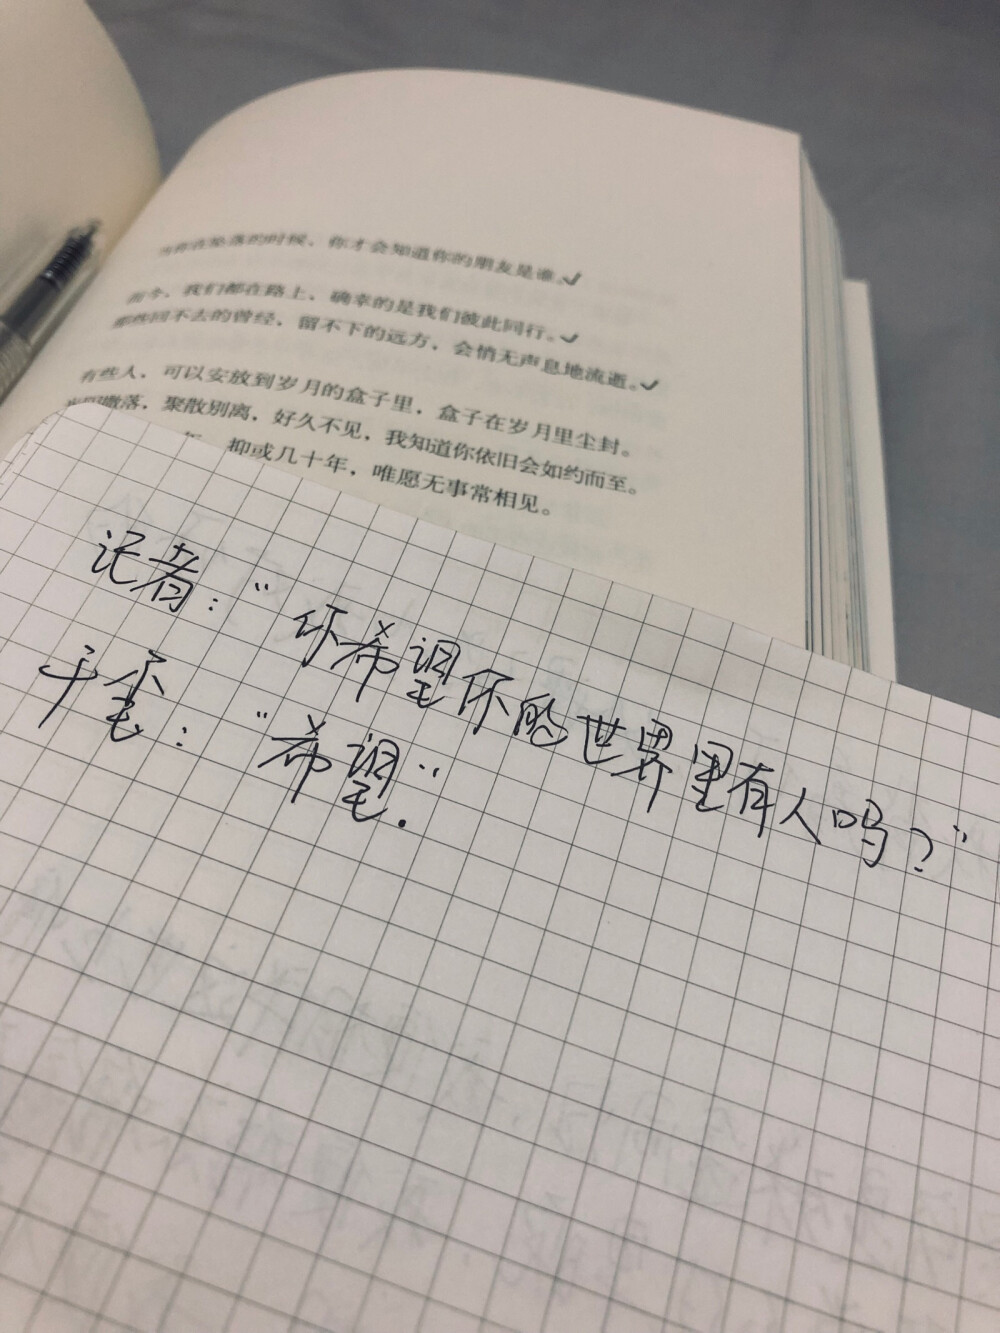 当你在坠落的时候，你才会知道你的朋友是谁。✓
而今，我们都在路上，确幸的是我们彼此同行。✓
那些回不去的曾经，留不下的远方，会悄无声息地流逝。✓
有些人，可以安放到岁月的盒子里，盒子在岁月里尘封。
撒落，聚散别离，好久不见，我知道你依旧会如约而至。
年，抑或几十年，唯愿无事常相见。
记者："你希望你的世界里有人吗？"
千玺："希望".